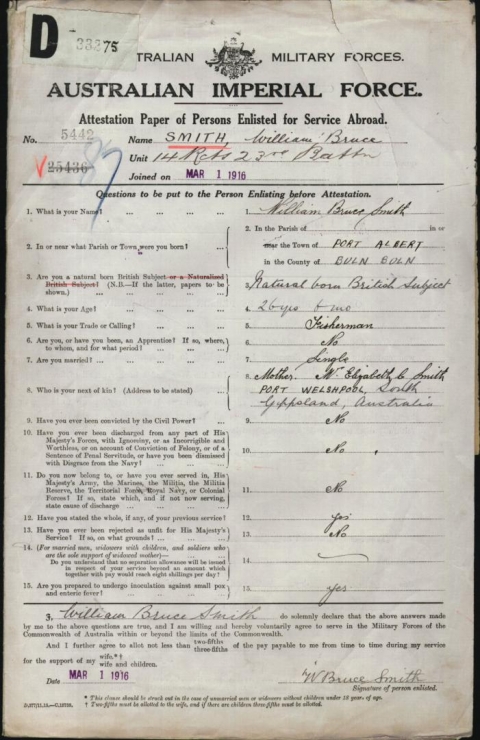 D
33375
AUSTRALIAN MILITARY FORCES.
AUSTRALIAN IMPERIAL FORCE.
Attestation Paper of Persons Enlisted for Service Abroad.
No. 5442 Name SMITH, William Bruce
25436 Unit 14 Rets 23rd Battn
Joined on MAR 1 1916
Questions to be put to the Person Enlisting before Attestation.
1. What is your Name? ... ... ... ... 1. William Bruce Smith
2. In or near what Parish or Town were you born? ... 2. In the Parish of in or
near the Town of PORT ALBERT
in the County of BULN BULN
3. Are you a natural born British Subject or a Naturalized British Subject? (N.B.—If the latter, papers to be shown.) ... ... 3. Natural born British Subject
4. What is your Age? ... ... ... ... 4. 26 yrs mo
5. What is your Trade or Calling? ... ... ... 5. Fisherman
6. Are you, or have you been, an Apprentice? If so, where, to whom, and for what period? ... ... 6. No
7. Are you married? ... ... ... ... 7. Single
8. Who is your next of kin? (Address to be stated) ... 8. Mother. Elizabeth C Smith
PORT WELSHPOOL South
Gippsland, Australia
9. Have you ever been convicted by the Civil Power? ... 9. No
10. Have you ever been discharged from any part of His
Majesty's Forces, with Ignominy, or as Incorrigible and
Worthless, or on account of Conviction of Felony, or of a
Sentence of Penal Servitude, or have you been dismissed
with Disgrace from the Navy? ... ... 10. No
11. Do you now belong to, or have you ever served in, His
Majesty's Army, the Marines, the Militia, the Militia
Reserve, the Territorial Force, Royal Navy, or Colonial
Forces? If so, state which, and if not now serving,
state cause of discharge ... ... ... 11. No
12. Have you stated the whole, if any, of your previous service? 12. yes
13. Have you ever been rejected as unfit for His Majesty's
Service? If so, on what grounds? ... ... 13. No
14. (For married men, widowers with children, and soldiers who
are the sole support of widowed mother)—
Do you understand that no separation allowance will be issued
in respect of your service beyond an amount which
together with pay would reach eight shillings per day? 14.
15. Are you prepared to undergo inoculation against small pox
and enteric fever? ... ... ... 15. yes
I, William Bruce Smith do solemnly declare that the above answers made
by me to the above questions are true, and I am willing and hereby voluntarily agree to serve in the Military Forces of the
Commonwealth of Australia within or beyond the limits of the Commonwealth.
And I further agree to allot not less than two-fifths three-fifths of the pay payable to me from time to time during my service
for the support of my wife.*† wife and children.
Date MAR 1 1916 W Bruce Smith
Signature of person enlisted.
* This clause should be struck out in the case of unmarried men or widowers without children under 18 years of age.
† Two-fifths must be allotted to the wife, and if there are children three-fifths must be allotted.